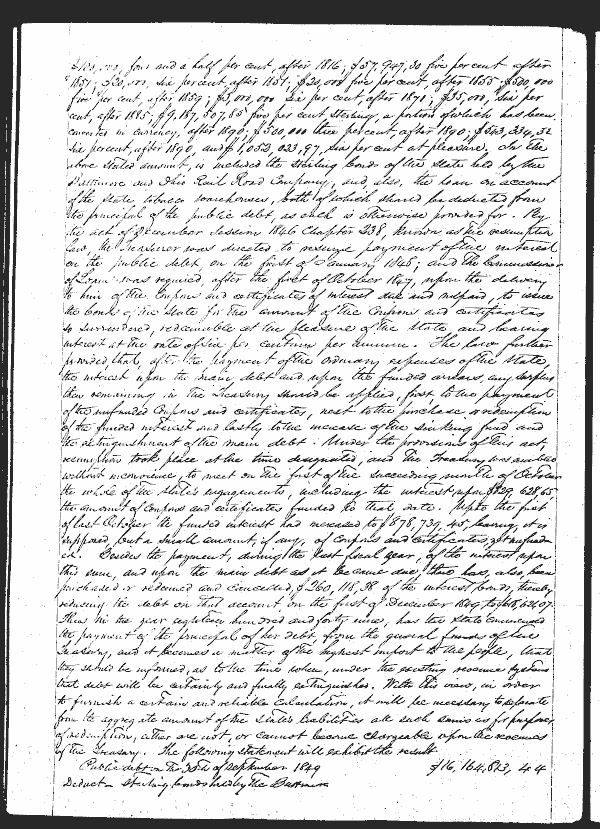 four and a half per cent, after 1846; $57,947,30 five per cent after
1851; $20,000, six per cent, after 1851; $30,000 five per cent, after 1855; $500,000
five per cent, after 1859; $3,000,000 six per cent, after 1871; $35,000, six per
cent, after 1885; $9,187,507,85 five per cent sterling, a portion of which has been
converted in currency, after 1890; $500,000 three per cent, after 1890;
six per cent, after 1890, and six per cent at pleasure. In the
above stated amount, is included the sterling bonds of the State held by the
Baltimore and Ohio Rail Road Company, and, also, the loan on account
of the State tobacco warehouses, both of which should be deducted from
the principal of the public debt, as each is otherwise provided for. By
the act of December Session 1846 Chapter 238, known as the resumption
law, the Treasurer was directed to resume payment of the interest
on the public debt on the first of January 1848; and the Commissioner
of Loans was required, after the first of October 1847, upon the delivery
to him of the Coupons and certificates of interest due and unpaid, to issue
the bonds of the State for the amount of the Coupons and certificates
so surrendered, redeemable at the pleasure of the State and bearing
interest at the rate of six per centum per annum. The law further
provided that, after the payment of the ordinary expenses of the State
the interest upon the main debt and upon the funded arrears, any surplus
then remaining in the Treasury should be applied, first to the payment
of the unfunded Coupons and certificates, next to the purchase or redemption
of the funded interest and lastly to the increase of the sinking fund and
the extinguishment of the main debt. Under the provisions of this act,
resumption took place at the time designated, and the Treasury was enabled
without inconvenience, to meet on the first of the succeeding month of October
the whole of the State's engagements, including the interest upon
the amount of Coupons and certificates funded to that date. Up to the first
of last October the funded interest had increased to $878,739,45, leaving, it is
supposed, but a small amount, if any, of Coupons and certificates, yet unfund-
ed. Besides the payment, during the last fiscal year, of the interest upon
this sum, and upon the main debt as it became due, there has, also, been
purchased or redeemed and cancelled, $260,118,38 of the interest bonds, thereby
reducing the debt on that account, on the first of December 1849, to $618,621,07.
Thus in the year eighteen hundred and forty nine, has the State commenced
the payment of the principal of her debt, from the general funds of her
Treasury, and it becomes a matter of the highest import to the people, that
they should be informed, as to the time when, under the existing revenue system
that debt will be certainly and finally extinguished. With this view, in order
to furnish a certain and reliable calculation, it will be necessary to separate
from the aggregate amount of the State's liabilities all such sums as for purposes
of redemption, either are not, or cannot become chargeable upon the revenues
of the Treasury. The following statement will exhibit the result.
Public debt on the 30th of September 1849 $16,164,813,44
Deduct Sterling bonds held by the Baltimore